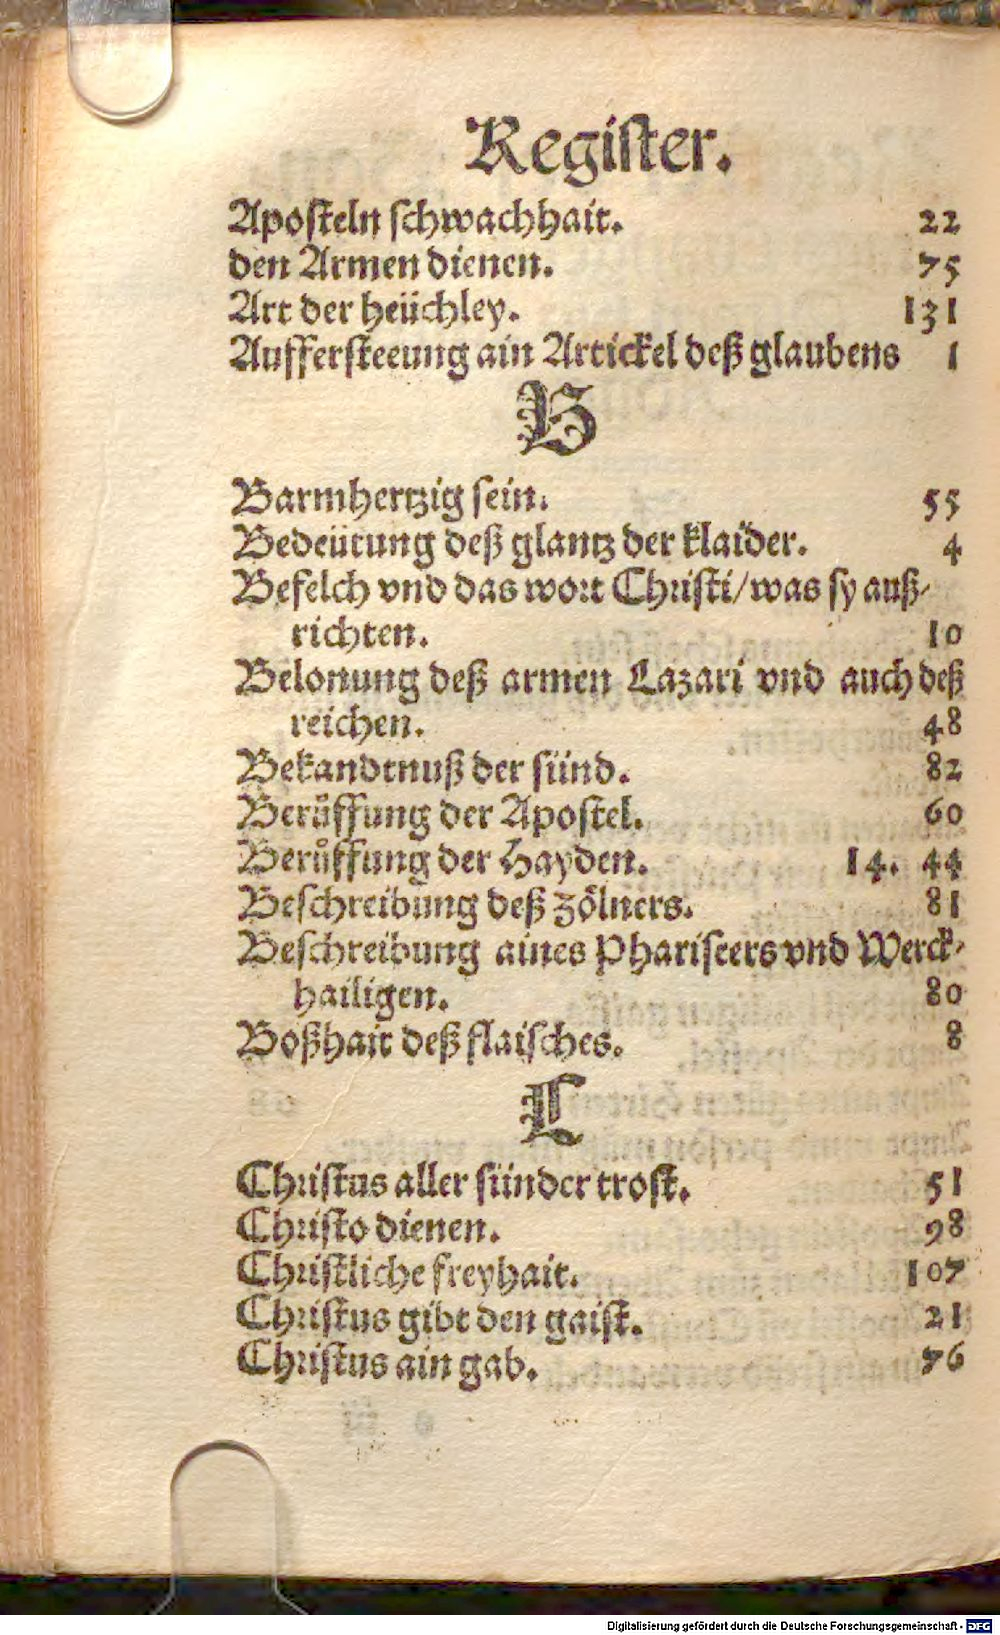 Register.
Aposteln schwachhait. 22
den Armen dienen. 75
Art der heüchley. 131
Auffersteeung ain Artickel deß glaubens 1
B
Barmhertzig sein. 55
Bedeütung deß glantz der klaider. 4
Befelch vnd das wort Christi/was sy auß-
richten. 10
Belonung deß armen Lazari vnd auch deß
reichen. 48
Bekandtnuß der sünd. 82
Berůffung der Apostel. 60
Berůffung der Hayden. 14. 44
Beschreibung deß zölners. 81
Beschreibung aines Phariseers vnd Werck-
hailigen. 80
Boßhait deß flaisches. 8
C
Christus aller sünder trost. 51
Christo dienen. 98
Christliche freyhait. 107
Christus gibt den gaist. 21
Christus ain gab. 76
Digitalisierung gefördert durch die Deutsche Forschungsgemeinschaft - DFG